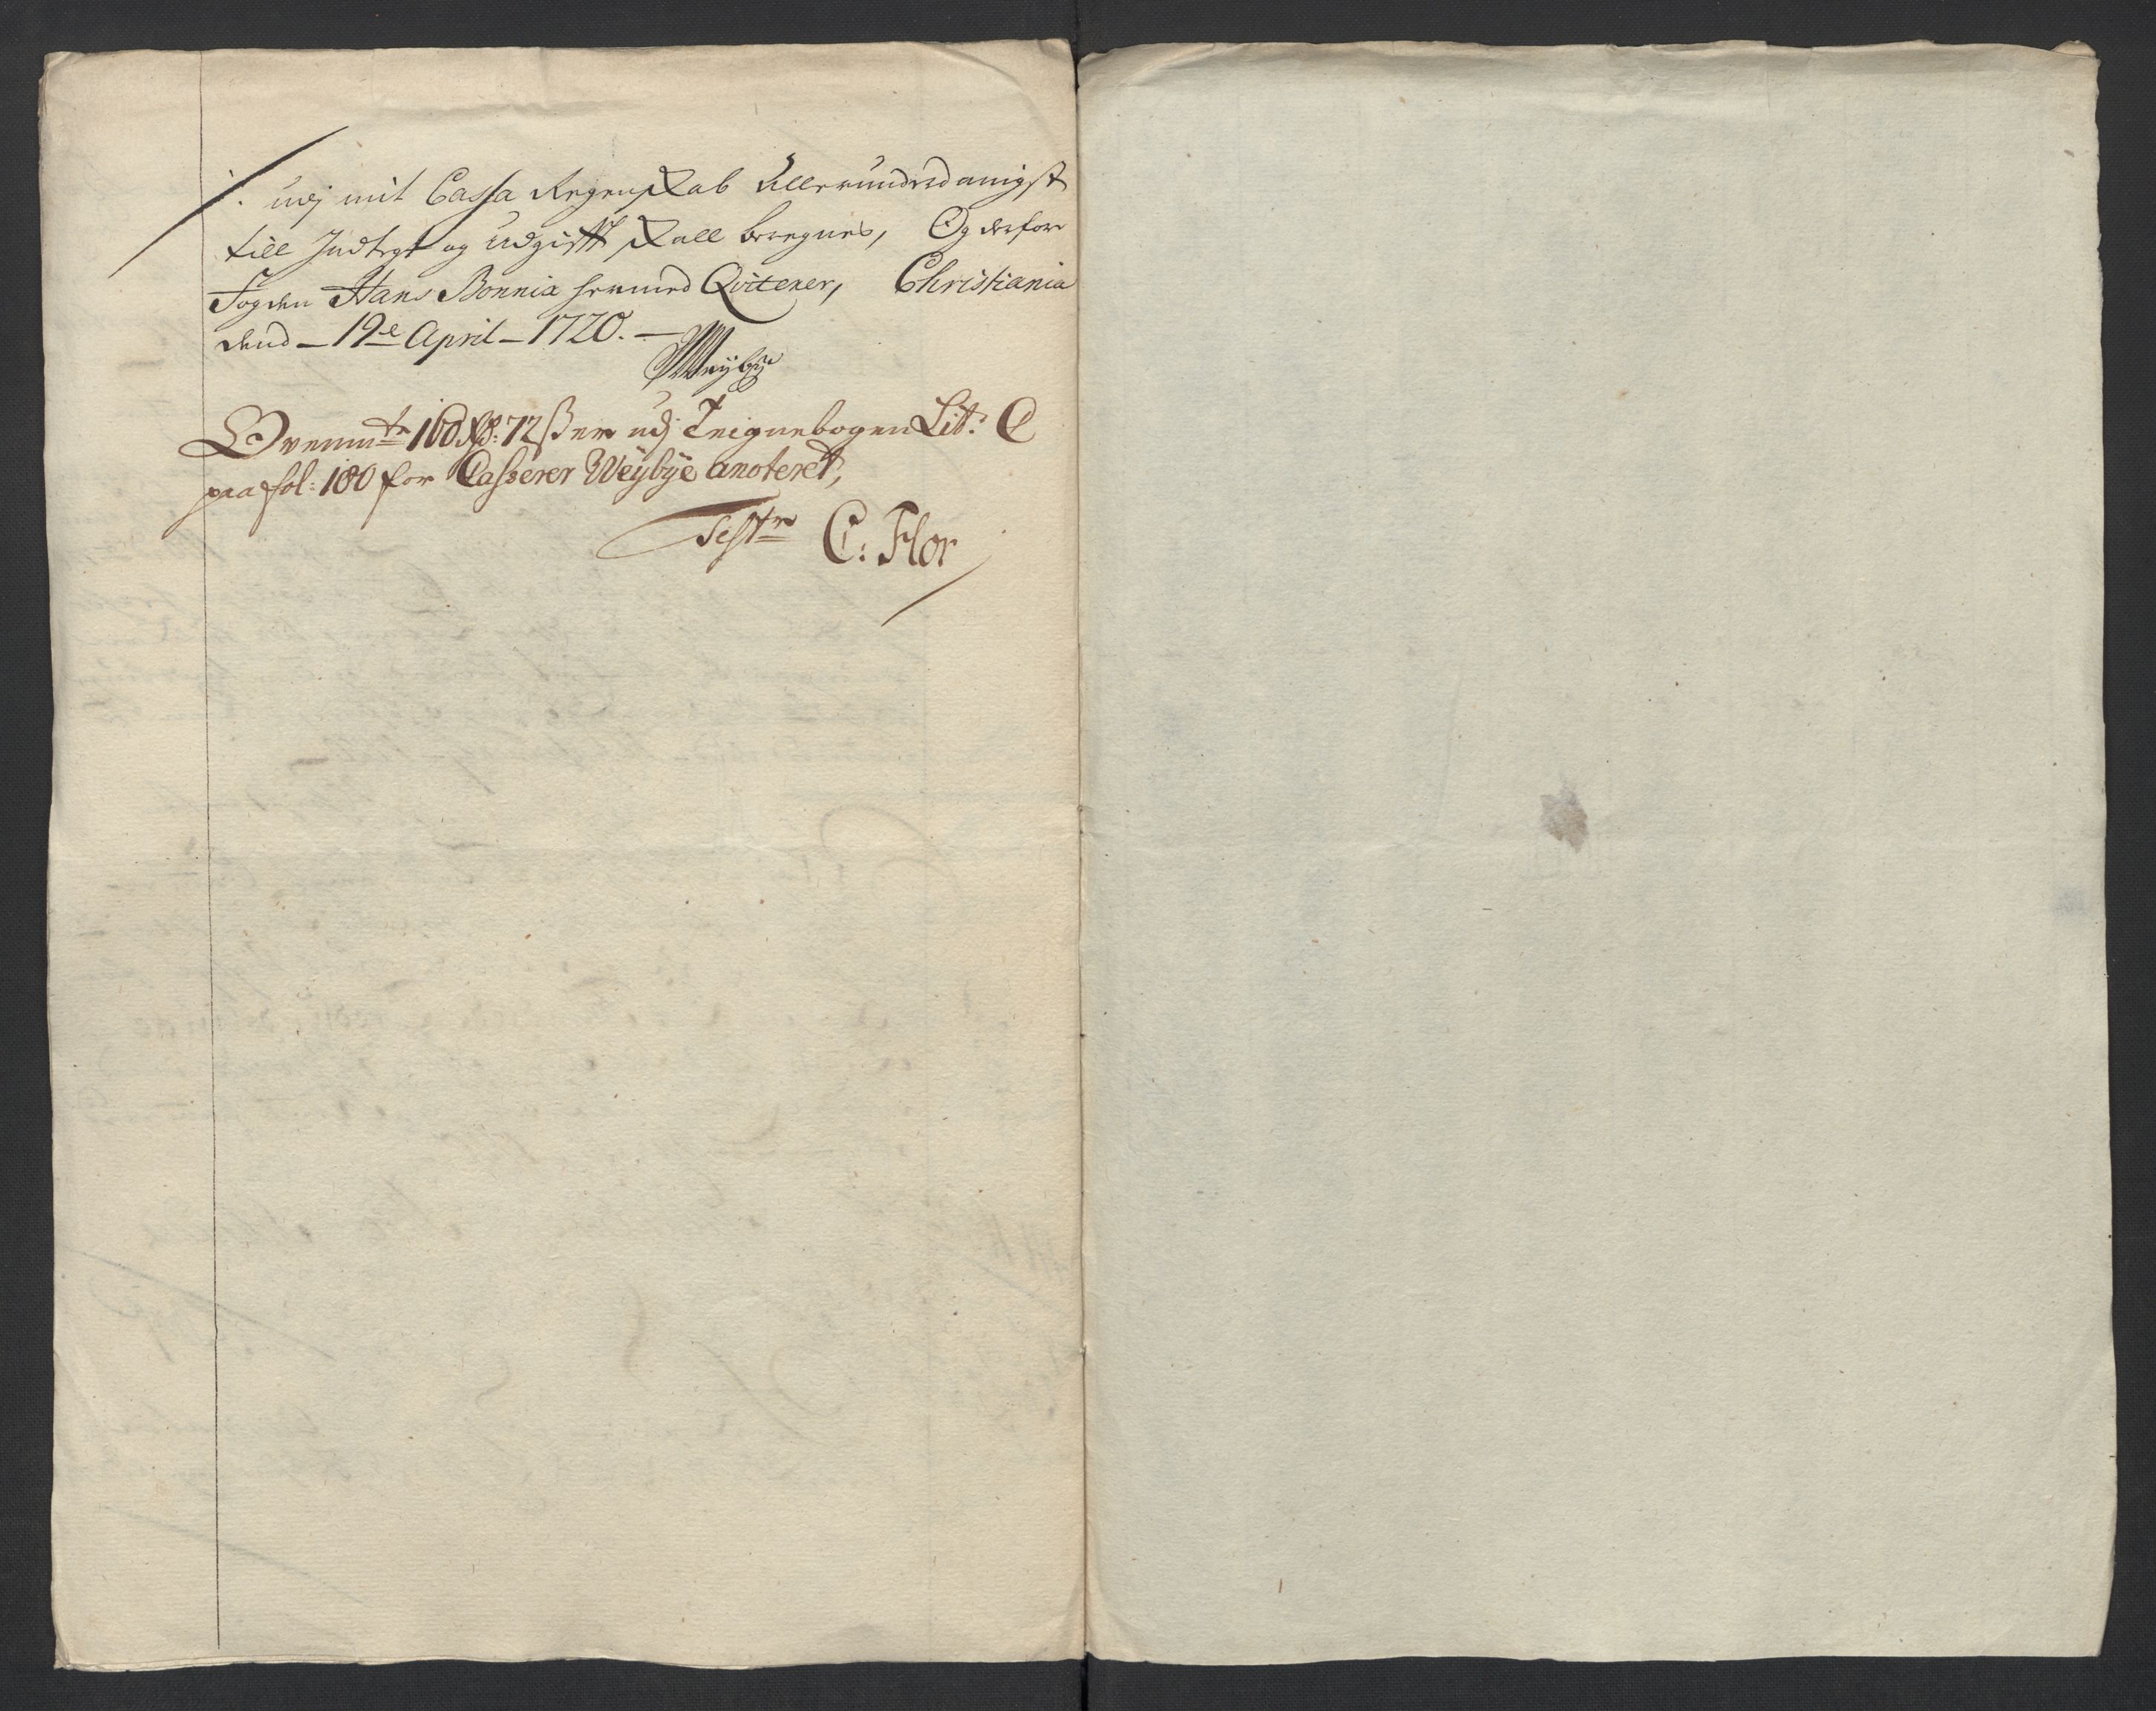 /. udj mit Cassa Regenskab Allerunderdanigst
till Indtegt og Udgifft skall beregnes, Og derfore
Fogden Hans Bonnix hermed Qvitterer, Christiania
dend 19de April 1720.
Weybye
Ovenmte 160 Rd: 72 ß er udj Teignebogen Lit: C
paa fol: 180 for Casserer Weÿbÿe anoteret,
Test
C: Flor